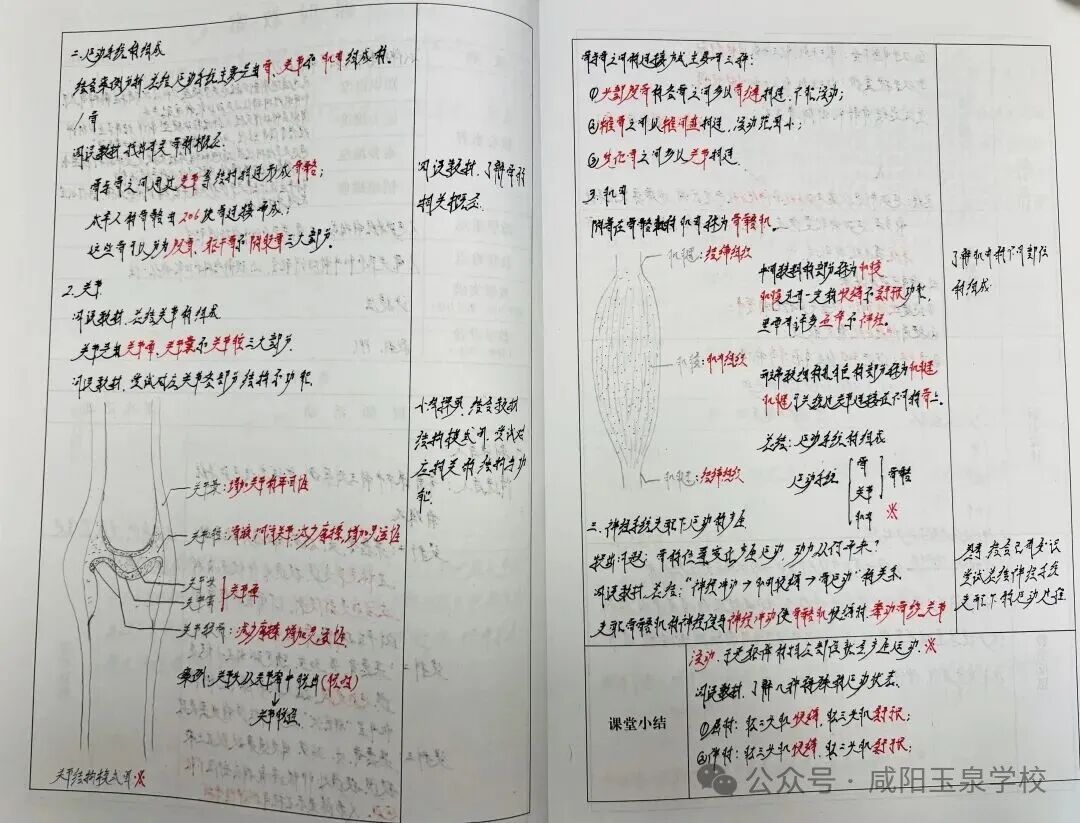 二、运动系统的组成
结合案例分析,总结运动系统主要是由骨、关节和肌肉组成的。
1.骨
阅读教材,找出有关骨的概念。
骨与骨之间通过关节等结构相连形成骨骼;
成年人的骨骼由206块骨连接而成;
这些骨可以分为颅骨、躯干骨和附肢骨三大部分。
2.关节
阅读教材,总结关节的组成
关节是由关节面、关节囊和关节腔三大部分。
阅读教材,尝试对应关节各部分结构和功能。
关节囊:增加关节的牢固性
关节腔:有滑液,减少摩擦,增加灵活性
关节头
关节窝
关节面
关节软骨:减少摩擦,增加灵活性
案例:关节头从关节窝中脱出(脱臼)
关节脱位
关节结构模式图 ※
阅读教材,了解骨的相关概念
小组探究,结合教材结构模式图,尝试对应相关的结构与功能
骨与骨之间的连接方式主要有三种:
①大部分颅骨的各骨之间多以骨缝相连,不能活动;
②椎骨之间以椎间盘相连,活动范围小;
③四肢骨之间多以关节相连。
3.肌肉
附着在骨骼上的肌肉称为骨骼肌。
肌腱:结缔组织
中间较粗的部分称为肌腹
肌腹具有一定的收缩和舒张功能,
里面有许多血管和神经。
肌腹:肌肉组织
两端较细的呈白色的部分称为肌腱
肌腱可以绕过关节连接在不同的骨上。
肌腱:结缔组织
总结:运动系统的组成
运动系统
骨
关节
肌肉
骨骼
※
三、神经系统支配下运动的产生
提出问题:骨的位置变化产生运动,动力从何而来?
阅读教材,总结:“神经冲动→肌肉收缩→骨运动”的关系
支配骨骼肌的神经传导神经冲动使骨骼肌收缩时,牵动骨绕关节
运动,于是躯体的相应部位就会产生运动。※
阅读教材,了解几种特殊的运动状态。
①屈肘:肱二头肌收缩,肱三头肌舒张;
②伸肘:肱三头肌收缩,肱二头肌舒张;
课堂小结
了解肌肉的不同部位的组成
思考,结合已有知识尝试总结神经系统支配下的运动过程
公众号 · 咸阳玉泉学校